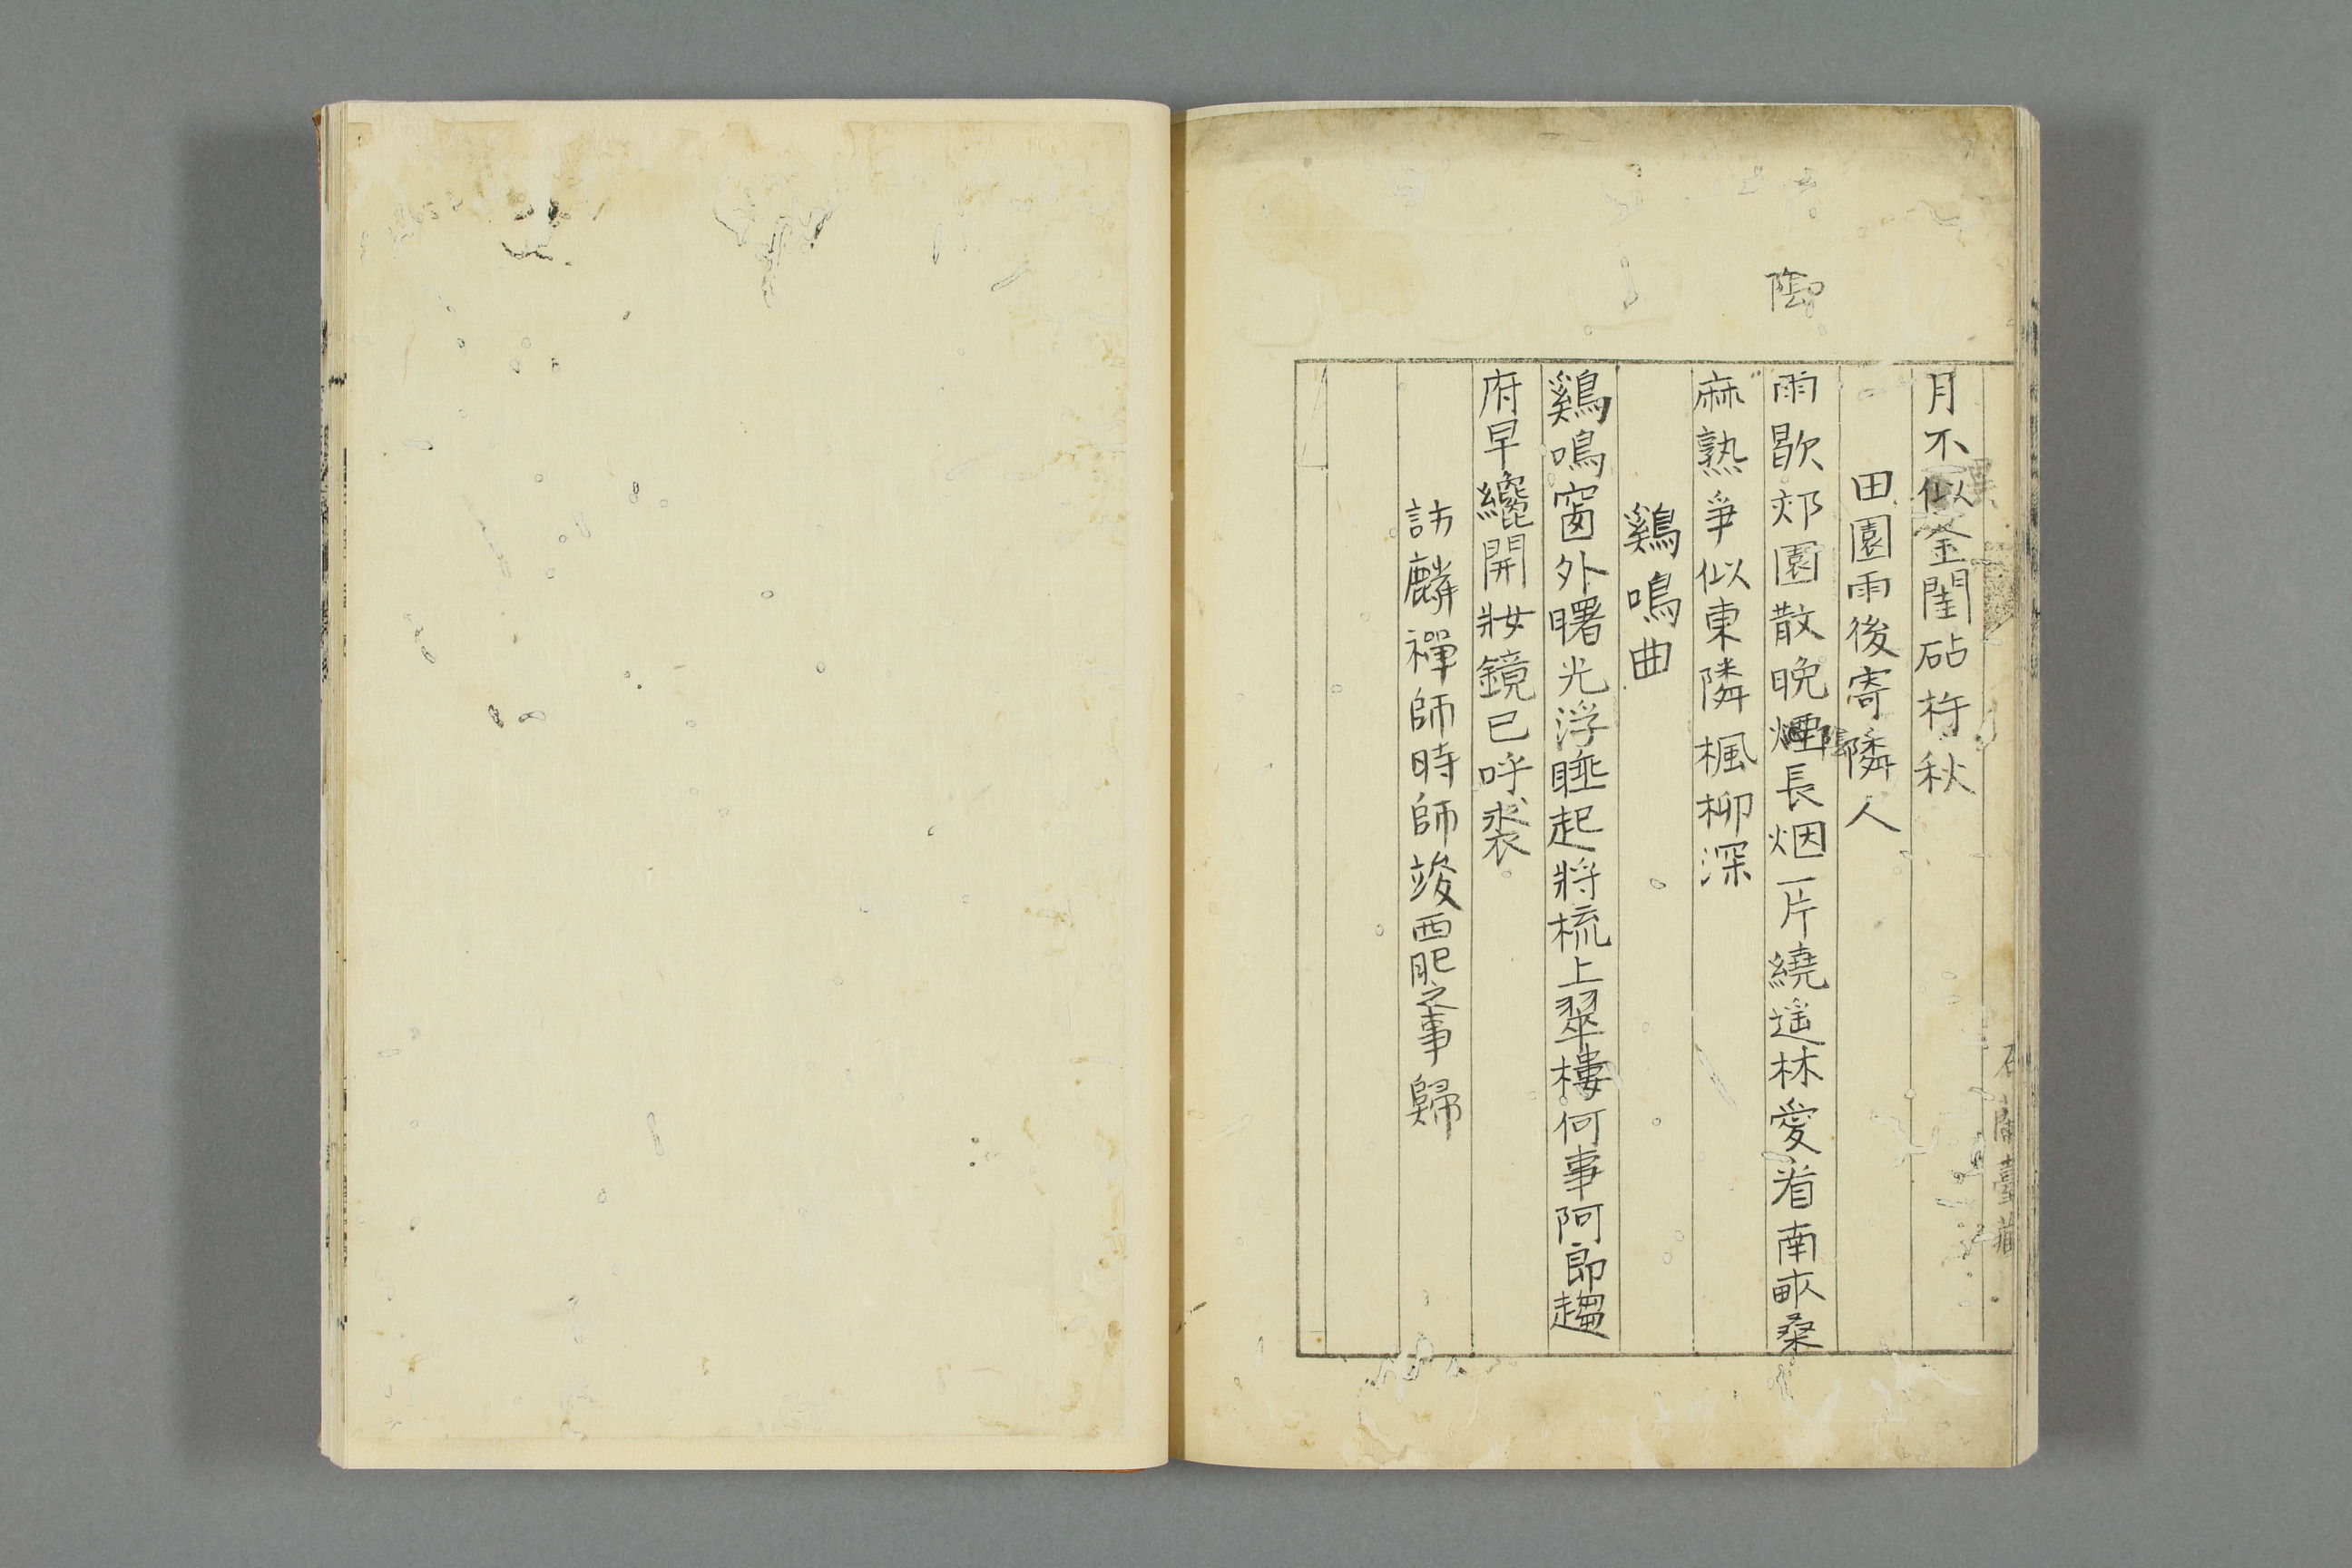 陰
月不似金閨砧杵秋
田園雨後寄隣人
雨歇郊園散晩煙長烟一片繞遥林愛看南畝桑
麻熟爭似東隣楓柳深
鷄鳴曲
鷄鳴窗外曙光浮睡起將梳上翠樓何事阿郎趨
府早纔開妝鏡已呼裘
訪麟禪師時師竣西肥之事歸
蘭臺藏